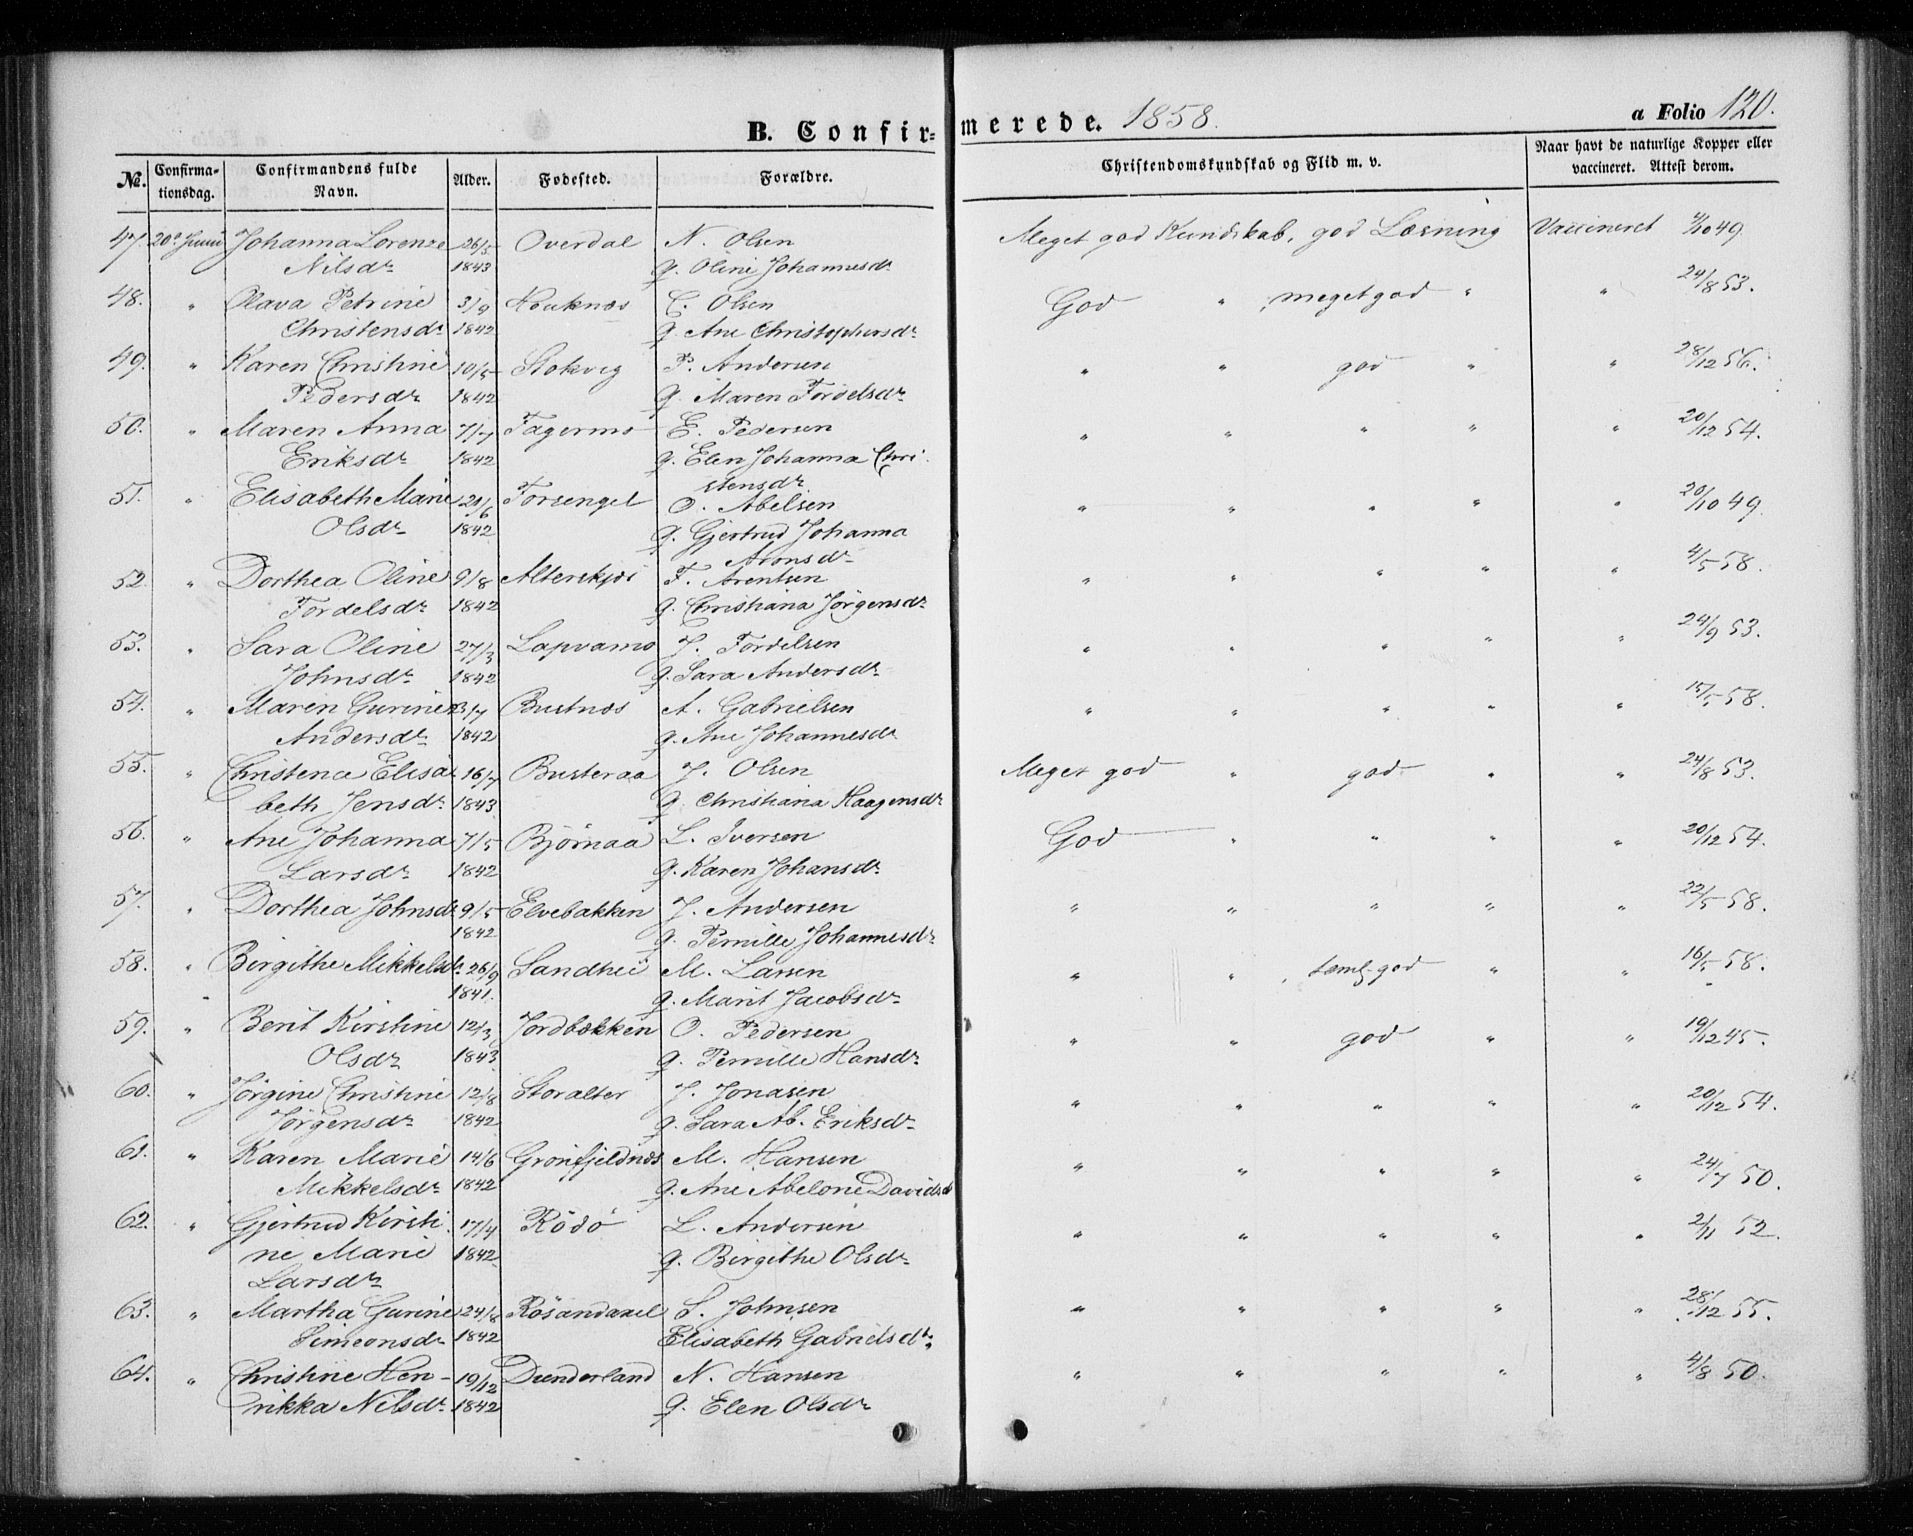 B. Confir- merede. 1858.
a Folio 120.
No. Confirma-tionsdag. Confirmandens fulde Navn. Alder. Fødested. Forældre. Christendomskundskab og Flid m. v. Naar havt de naturlige Kopper eller vaccineret. Attest derom.
47. 20de Juni Johanna Lorense 26/5 Overdal N. Olsen Meget god Kundskab, god Læsning Vaccineret 4/10 49.
Nilsdr 1843 q. Oline Johannesdr
48. " Olava Petrine 3/9 Houknæs C. Olsen God " , meget god " " 24/8 53.
Christensdr 1842 q. Ane Christophersdr
49. " Karen Christine 10/5 Stokvig P. Andersen " " god " " 28/12 56.
Pedersdr 1842 q. Maren Tordelsdr
50. " Maren Anna 7/7 Fagermo E. Pedersen " " " " " 20/12 54.
Eriksdr 1842 q. Elen Johanna Chri-
stensdr
51. " Elisabeth Marie 21/6 Forsengel O. Abelsen " " " " " 20/10 49.
Olsdr 1842 q. Gjertrud Johanna
Aronsdr
52. " Dorthea Oline 9/8 Alterskjæs T. Arentsen " " " " " 4/5 58.
Tordelsdr 1842 q. Christiana Jørgensdr
53. " Sara Oline 27/3 Lapvamo J. Tordelsen " " " " " 24/9 53.
Johnsdr 1842 q. Sara Andersdr
54. " Maren Gurine 3/7 Bustnæs A. Gabrielsen " " " " " 15/5 58.
Andersdr 1842 q. Ane Johannesdr
55. " Christence Elisa- 16/7 Busteraa J. Olsen Meget god " god " " 24/8 53.
beth Jensdr 1843 q. Christiana Haagensdr
56. " Ane Johanna 7/5 Bjørnaa L. Iversen God " " " " 20/12 54.
Larsdr 1842 q. Karen Johansdr
57. " Dorthea Johnsdr 9/5 Elvebakken J. Andersen " " " " " 22/5 58.
1842 q. Pernille Johannesdr
58. " Birgithe Mikkelsdr 26/9 Sandhei M. Larsen " " , teml. god " " 16/5 58.
1841. q. Marit Jacobsdr
59. " Berit Kirstine 12/3 Jordbækken O. Pedersen " " god " " 19/12 45.
Olsdr 1843 q. Pernille Hansdr
60. " Jørgine Christine 12/8 Storalter J. Jonasen " " " " " 20/12 54.
Jørgensdr 1842 q. Sara Ab. Eriksdr
61. " Karen Marie 14/6 Grønfjeldnæs M. Hansen " " " " " 24/7 50.
Mikkelsdr 1842 q. Ane Abelone Davidsd
62. " Gjertrud Kirsti- 17/4 Rödö L. Andersen " " " " " 2/11 52.
ne Marie 1842 q. Birgithe Olsdr
Larsdr
63. " Martha Gurine 24/8 Røsandaxel S. Johnsen " " " " " 28/12 55.
Simeonsdr 1842 Elisabeth Gabrielsdr
64. " Christine Hen- 19/12 Dunderland N. Hansen " " " " " 4/8 50.
rikka Nilsdr 1842 q. Elen Olsdr